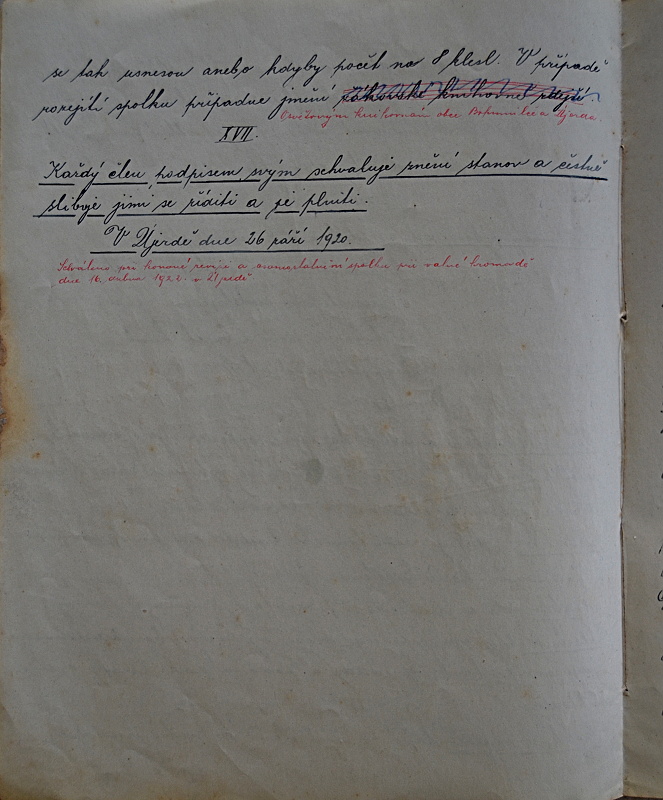 se tak usnesou anebo kdyby počet na 8 klesl. V případě
rozejití spolku připadne jmění žákovské knihovně zdejší
Osvětovým knihovnám obce Bohumilče a Újezda.
XVII.
Každý člen podpisem svým schvaluje znění stanov a čestně
slibuje jimi se říditi a je plniti.
V Újezdě dne 26 září 1920.
Schváleno při konané revisi a spolku při valné hromadě
dne 16. dubna v Újezdě